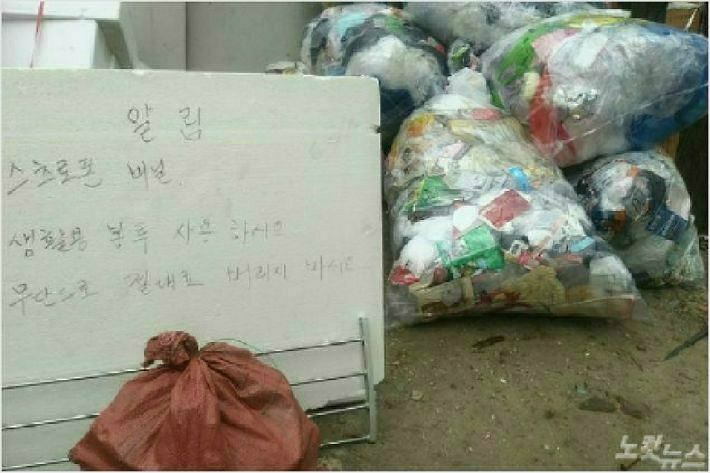 알 림
스츠로폰 비닐
생활용 봉투 사용 하시오
무단으로 절대로 버리지 마시오
노컷뉴스